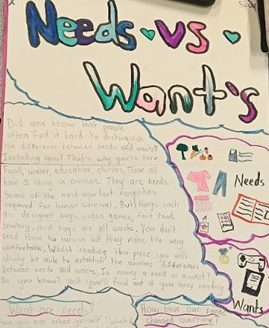 Needs vs
Want's
Did you know that people
often find it hard to distinguish
difference between needs and wants?
Including you? That's why you're here.
Food, water, education, clothes, those all
have 1 thing in common. They are needs.
Some of the most important necessities
required for human survival. But things such
as designer bags, video games, fast food,
jewlery, and toys are all wants. You don't
to survive but they make life very
comfortable. Whilst reading this piece, you will
slowly be able to establish the obvious differences
between needs and wants. Is money a need or a want?
Do you know? Well you'll find out if you keep reading.
Needs
Wants
What are needs?
How have our needs
changed overtime?